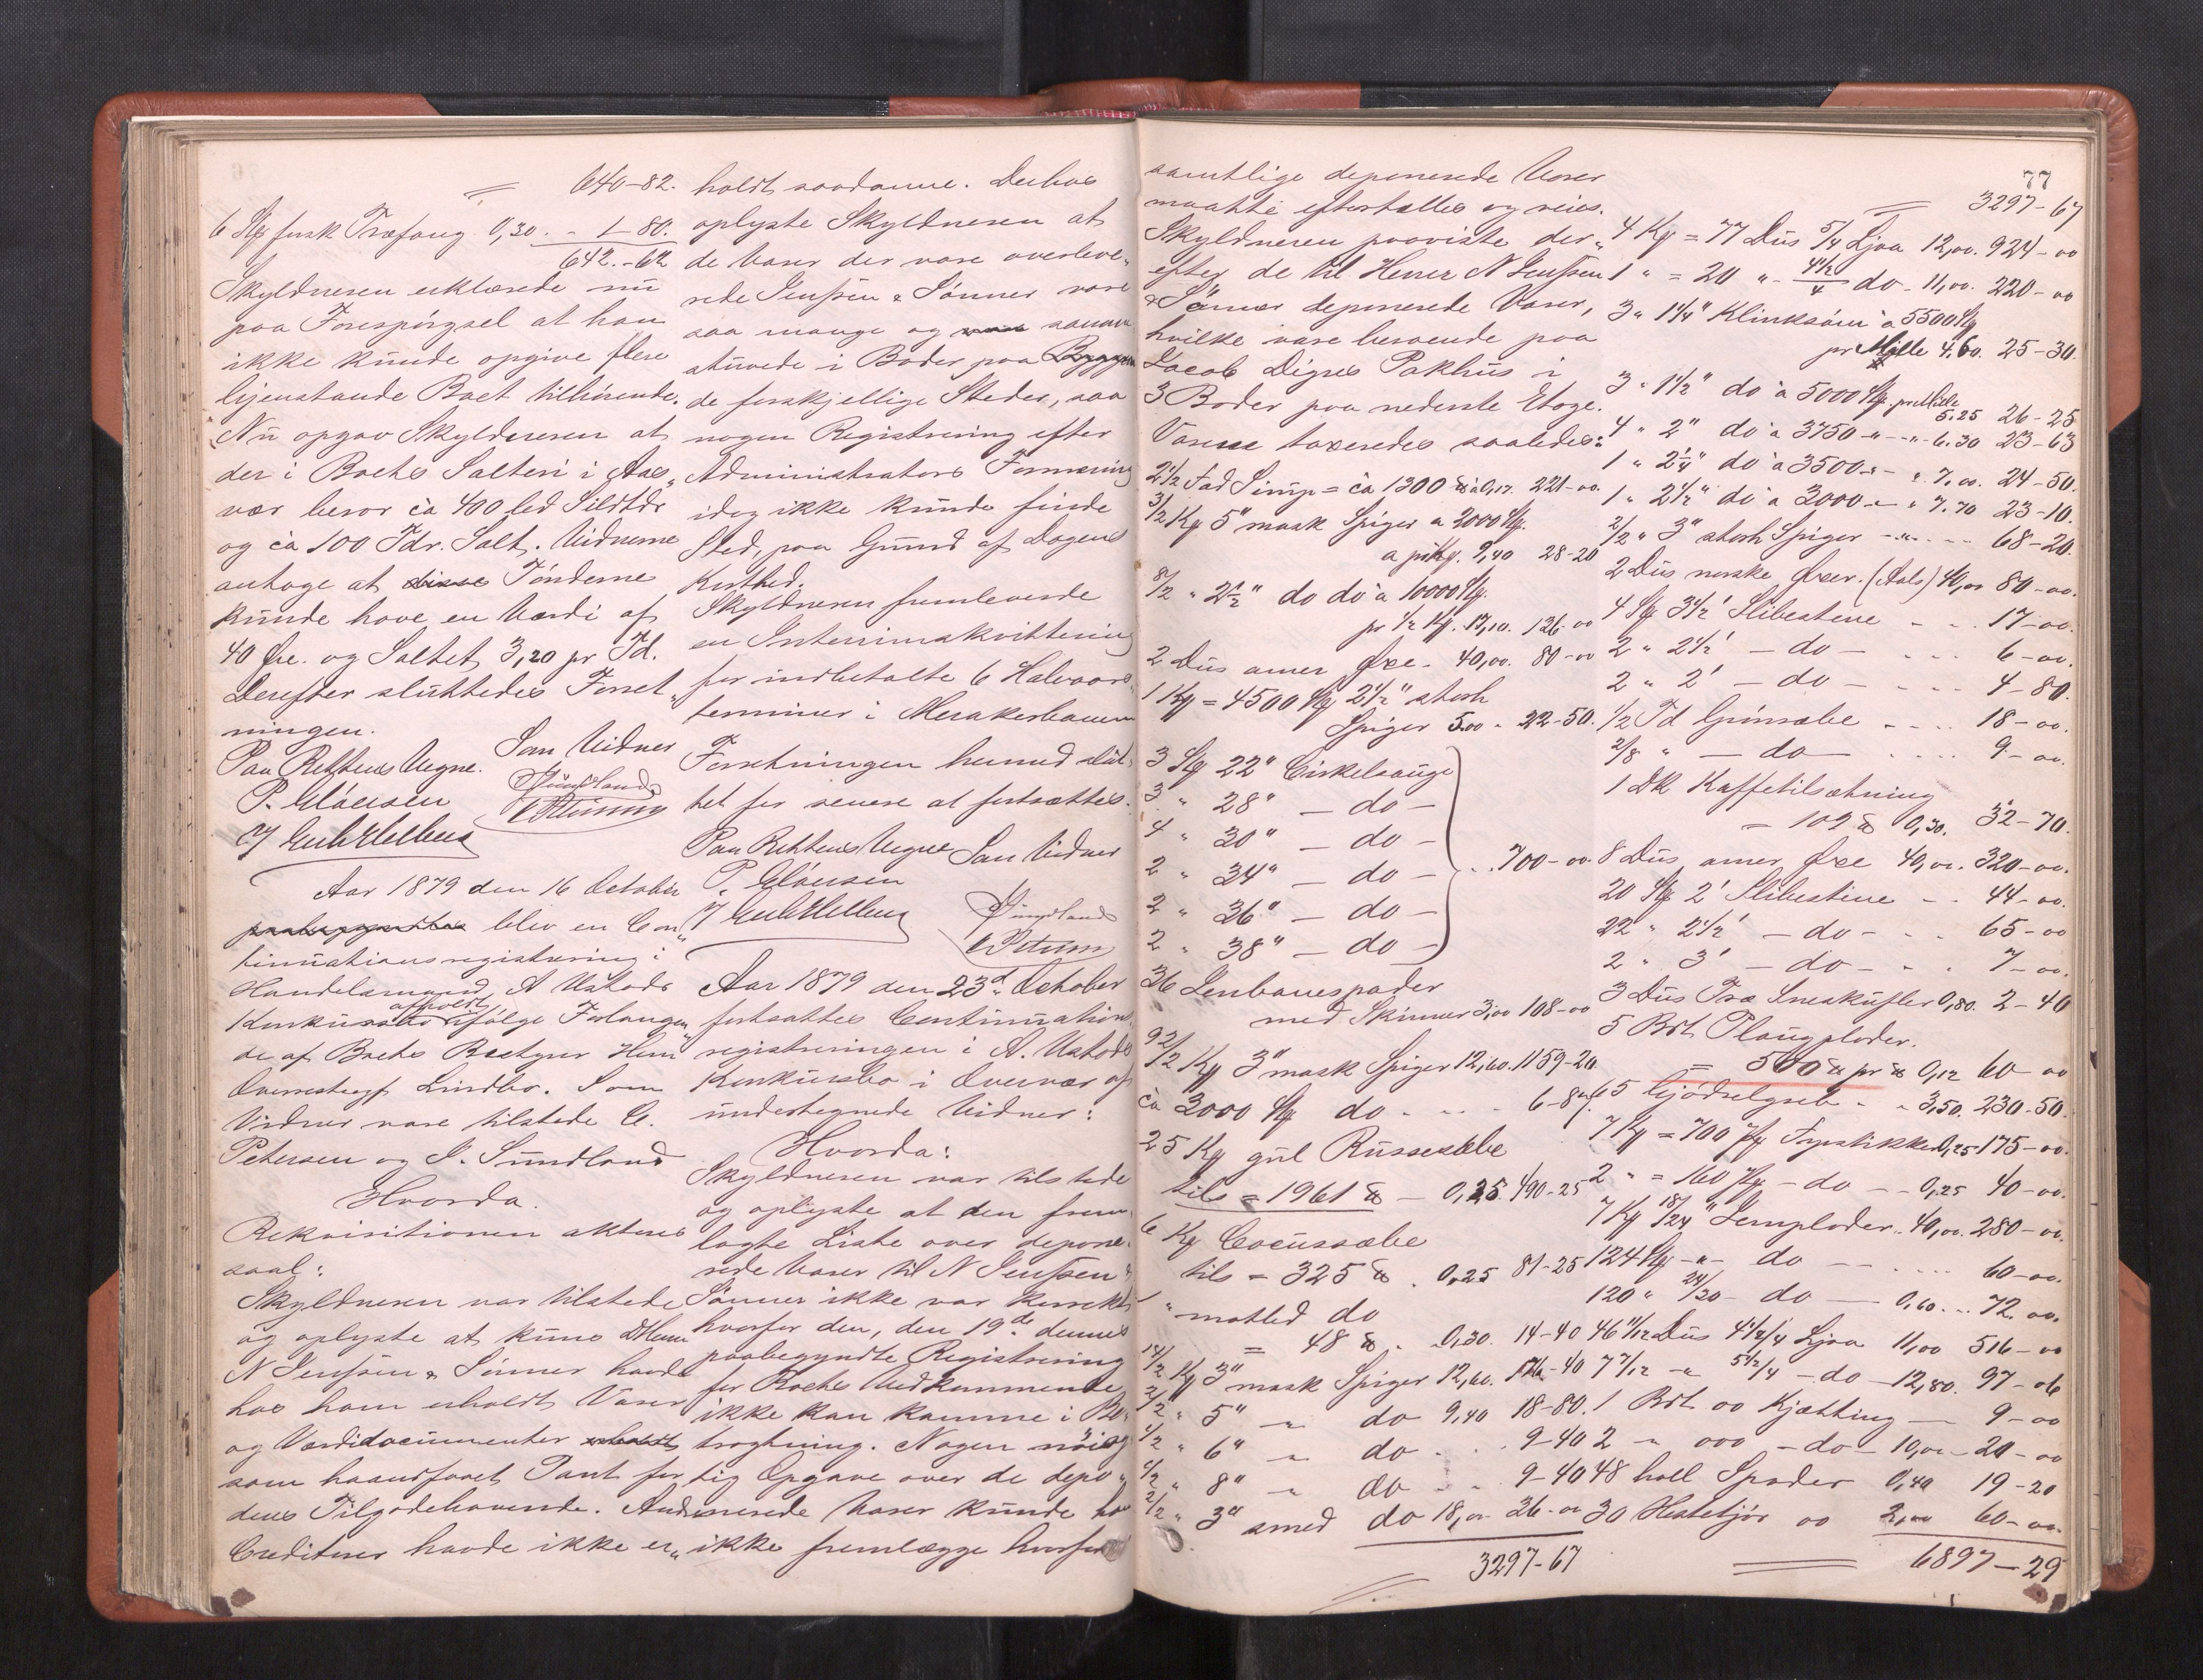 = 640-82.
6 Stk fersk Træfang 0,30. - 1-80.
642.-62
Skyldneren erklærede nu
paa Forespørgsel at han
ikke kunde opgive flere
Gjenstande Boet tilhørende.
Nu opgav Skyldneren at
der i Boets Salteri i Aas-
vær beror ca 400 led Sildtdr
og ca 100 Tdr. Salt. Vidnerne
antoge at disse Tønderne
kunde have en Værdi af
40 Øre. og Saltet 3,20 pr Td.
Derefter sluttedes Forret-
ningen.
Paa Rettens Vegne. Som Vidner
P. Clausen Sundland
CPetersen
Aar 1879 den 16 October
paabegyndtes blev en Con-
tinuationsregistrering i
Handelsmand A Ustads
Konkursbo afholdt ifølge Forlangen-
de af Boets Bestyrer Herr
Overretssagf. Lindbo. Som
Vidner vare tilstede C.
Petersen og S. Sundland
Hvorda.
Rekvisitionen akteres
saal:
Skyldneren var tilstede
og oplyste at kuns DHerr
N Jenssen & Sønner havde
hos ham erholdt Varer
og Værdidocumenter erholdt
som haandfaaet Pant for
deres Tilgodehavende. Andre
Creditorer havde ikke er-
holdt saadanne. Derhos
oplyste Skyldneren at
de Varer der vare overleve-
rede Jenssen & Sønner vare
saa mange og vare samm
stuvede i Boder paa Bryggen
de forskjellige Steder, saa
nogen Registrering efter
Administrators Formening
idag ikke kunde finde
Sted, paa Grund af Dagens
Korthed.
Skyldneren fremleverede
en Interimskvittering
for indbetalte 6 Halvaars-
terminer i Merakerbanen
Forretningen hermed slut-
tet for senere at fortsættes.
Paa Rettens Vegne Som Vidner
P. Clausen
Sundland
CPetersen
Aar 1879 den 23d October
fortsattes Continuations-
registreringen i A. Ustads
Konkursbo i Overvær af
undertegnede Vidner:
Hvorda:
Skyldneren var tilstede
og oplyste at den frem-
lagte Liste over depone-
rede Varer til N Jenssen &
Sønner ikke var korrekt
hvorfor den, den 19de dennes
paabegyndte Registrering
for Boets Vedkommende
ikke kan komme i Be-
tragtning. Nogen nøiag-
tig Opgave over de depo-
nerede Varer kunde han
ikke fremlægge hvorfor
samtlige deponerede Varer
maatte eftertælles og veies.
Skyldneren paaviste der-
efter de til Herrer N Jenssen
& Sønner deponerede Varer,
hvilke vare beroende paa
Jacob Digres Pakhus i
3 Boder paa nederste Etage.
Varene taxeredes saaledes:
2½ Fad Sirup = ca 1300 ℔ a 0,17. 221-00.
3/2 Kg 5" mask Spiger a 2000 Stk.
a pr ½ Kg. 9,40 28-20
8/2 " 2½" do do a 10000 Stk.
pr ½ Kg. 17,10. 136-00
2 Dus amer Øxe - 40,00. 80-00
1 Kg = 4500 Stk 2½" stark
Spiger 5.00 - 22-50.
3 Stk 22" Cirkelsauge
3 " 28" - do -
4 " 30" - do -
2 " 34" - do - ..700-00.
2 " 36" - do -
2 " 38" - do -
36 Jernbanespader
med Skinner 3,00 108-00
92/2 Kg 3" mask Spiger 12,60. 1159-20
ca 3000 Stk do - - - 6-87.
25 Kg gul Russesæbe
tils = 1961 ℔ - 0,25. 490-25
6 Kg Cocussæbe
tils = 325 ℔. 0,25 81-25
" matled do
= 48 ℔. 0,30. 14-40
14/2 Kg 3" mask Spiger 12,60. 176-40
2/2 " 5" " do 9,40 18-80.
1/2 " 6" " do . . 9-40
1/2 " 8" " do - . 9-40
2/2 " 3" smed do 18,00 36-00
3297-67
77
= 3297-67
4 Kg = 77 Dus 5/4 Ljaa 12,00. 924-00
1 " = 20 " - 4½/4 do - 11,00. 220-00
3 " 1¼" Klinksøm a 5500 Stk
pr Mille 4,60. 25-30.
3 " 1½" do a 5000 Stk. pr Mille
5,25 26-25
4 " 2" do a 3750 - " - " - 6.30 23-63
1 " 2¼" do a 3500 - " - " 7,00. 24-50.
1 " 2½" do a 3000 - " - " 7.70 23-10.
2/2 " 3" stark Spiger - " - ... 68-20.
2 Dus norske Øxer. (Aals) 40,00 80-00.
4 Stk 3½' Slibestene - . . 17-00.
2 " 2½' - do - . . . 6-00.
2 " 2' - do - - - - 4-80.
1/2 Td Grønsæbe - - - . 18-00.
2/8 " - do - . . . . 9-00.
1 Dk Kaffetilsætning
= 109 ℔ 0,30. 32-70.
8 Dus amer Øxe 40,00. 320-00.
20 Stk 2' Slibestene - - 44-00.
22 " 2½' - do - - . 65-00
2 " 3' - do - - . 7-00.
3 Dus Træ Sneskufler 0,80. 2-40
5 Bdt Plougplader.
= 500 ℔ pr ℔ 0,12 60-00
65 Gjødselgreb - - 3,50. 230-50.
7 Kg = 700 Pk Fyrstikker 0,25 175-00.
2 " = 160 Pk - do - - 0,25 40-00.
7 Kg 18/24" Jernplader.. 40,00. 280-00.
124 Stk - " - do - - .... 60-00.
120 " 24/30 - do - 0,60... 72.00.
46 11/12 Dus 4½/4 Ljaa 11,00 516-00
7 7/12 - " 5½/4 - do - 12,80. 97-06
1 Bdt oo Kjætting - 9-00
2 - " ooo - do - 10,00 - 20-00
48 holl Spader 0,40 19-20
30 Hestetjør oo 2,00 60-00.
6897-29